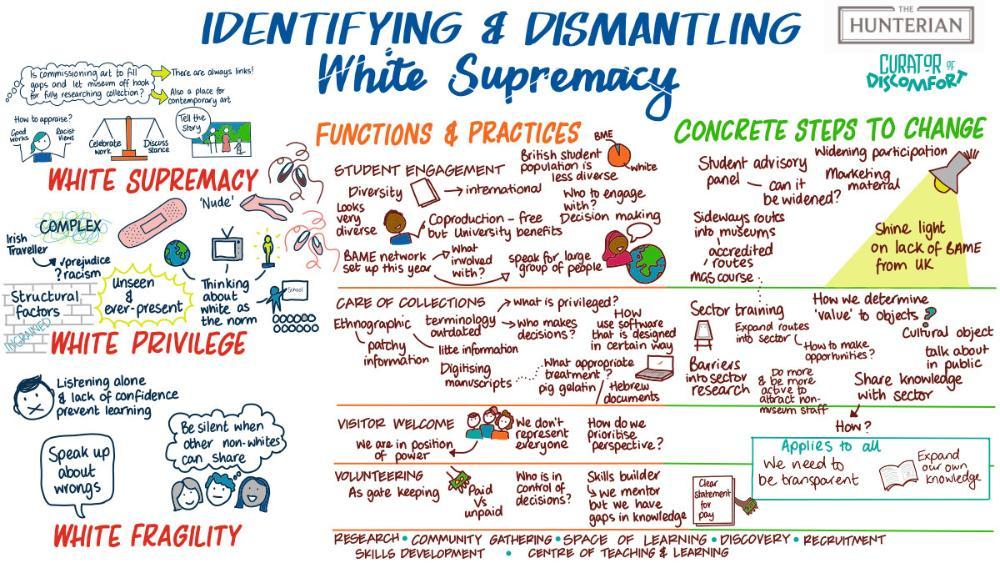 IDENTIFYING & DISMANTLING
White Supremacy
THE
HUNTERIAN
CURATOR OF
DISCOMFORT
Is commissioning art to fill
gaps and let museum off hook
for fully researching collection?
There are always links!
Also a place for
contemporary art
How to appraise?
Good
works
Racist
views
Celebrate
work
Discuss
stance
Tell the
story
WHITE SUPREMACY
'Nude'
COMPLEX
Irish
Traveller
prejudice
? racism
Structural
factors
INGRAINED
Unseen
&
ever-present
Thinking
about
white as
the norm
School
WHITE PRIVILEGE
Listening alone
& lack of confidence
prevent learning
Speak up
about
wrongs
Be silent when
other non-whites
can share
WHITE FRAGILITY
FUNCTIONS & PRACTICES
STUDENT ENGAGEMENT
British student
population is
less diverse
BME
white
Diversity
international
Looks
very
diverse
Who to engage
with?
Decision making
Coproduction - free
but University benefits
BAME network
set up this year
What
involved
with?
speak for large
group of people
CARE OF COLLECTIONS
What is privileged?
Ethnographic
patchy
information
terminology
outdated
Who makes
decisions?
little information
HOW
use software
that is designed
in certain way
Digitising
manuscripts
What appropriate
treatment?
pig gelatin / Hebrew
documents
VISITOR WELCOME
We are in position
of power
We don't
represent
everyone
How do we
prioritise
perspective?
VOLUNTEERING
As gate keeping
Paid
vs
unpaid
Who is in
control of
decisions?
Skills builder
we mentor
but we have
gaps in knowledge
CONCRETE STEPS TO CHANGE
Student advisory
panel
can it
be widened?
Widening participation
Marketing
material
Sideways routes
into museums
accredited
routes
MGS course
Shine light
on lack of BAME
from UK
Sector training
Expand routes
into sector
How to make
opportunities?
How we determine
'value' to objects?
Cultural object
talk about
in public
Barriers
into sector
research
Do more
& be more
active to
attract non-
museum staff
Share knowledge
with sector
How?
Applies to all
We need to
be transparent
Expand
our own
knowledge
Clear
statement
for
pay
RESEARCH • COMMUNITY GATHERING • SPACE OF LEARNING • DISCOVERY • RECRUITMENT
SKILLS DEVELOPMENT • CENTRE OF TEACHING & LEARNING